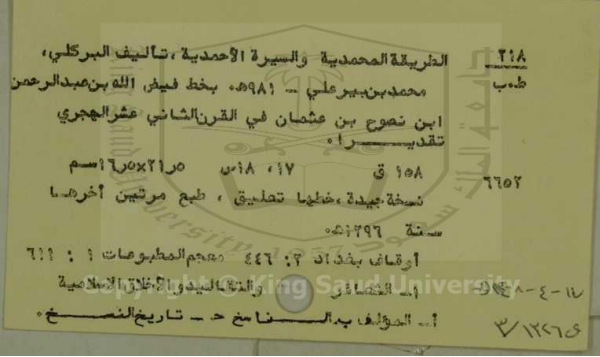 ٢١٨ الطريقة المحمدية والسيرة الأحمدية ، تأليف البركلي ،
ط.ب محمد بن بير علي - ٩٨١ هـ. بخط فيض الله بن عبد الرحمن
ابن نصوح بن عثمان في القرن الثاني عشر الهجري
تقديرا.
١٥٨ ق ١٧، ١٨ س ٢١٫٥×١٦٫٥ سم
٦٦٥٢
نسخة جيدة ، خطها تعليق ، طبع مرتين أخرها
سنة ١٢٩٦ هـ.
أوقاف بغداد ٢: ٤٤٦ معجم المطبوعات ١: ٦١١
أ- الفضائل والتقاليد والأخلاق الإسلامية
أ- المؤلف ب- الناسخ ح- تاريخ النسخ.
ف ١٢٢٦/٣
Copyright © King Saud University